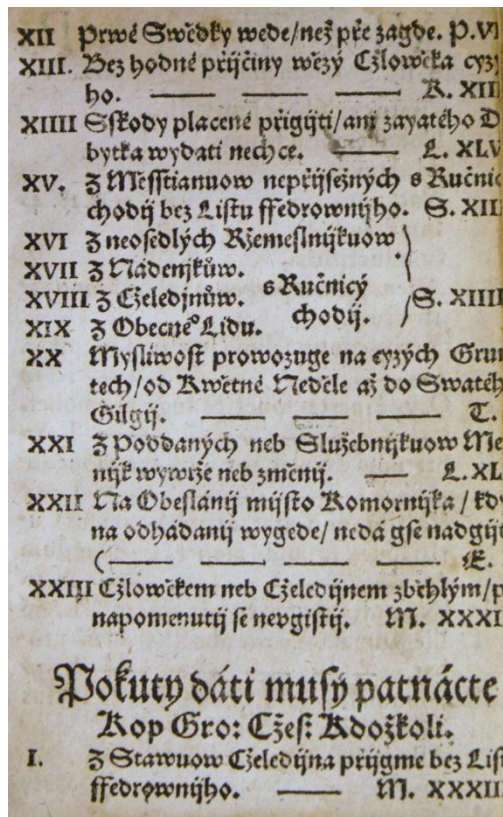 XII Prwé Swědky wede/než pře zagde. P.VI
XIII. Bez hodné přijčiny wězý Cžlowěka cyzý
ho. — — — K. XII
XIIII Sskody placené přigijti/anj zayatého D
bytka wydati nechce. — L. XLV
XV. Z Měsstianuow nepřijsežných s Ručnic
chodij bez Listu ffedrownijho. S. XII
XVI Z neosedlých Ržemeslnijkuow
XVII Z Nádenjkůw.
XVIII Z Cželedjnůw. s Ručnicý S. XIIII
XIX Z Obecné Lidu. chodij.
XX Mysliwost prowozuge na cyzých Grun
tech/od Kwětné Neděle až do Swatéh
Gilgij. — — — T.
XXI Z Poddaných neb Služebnijkuow Me
nijk wywrže neb změnij. — L.XL
XXII Na Obeslánij mijsto Komornijka/kdy
na odhádanij wygede/nedá gse nadgijt
(— — — — Æ.
XXIII Cžlowěkem neb Cželedijnem zběhlým/p
napomenutij se neygistij. M. XXXI
Pokuty dáti musý patnácte
Kop Gro: Cžes: Kdožkoli.
I. Z Stawuow Cželedijna přijgme bez List
ffedrownijho. — M. XXXII